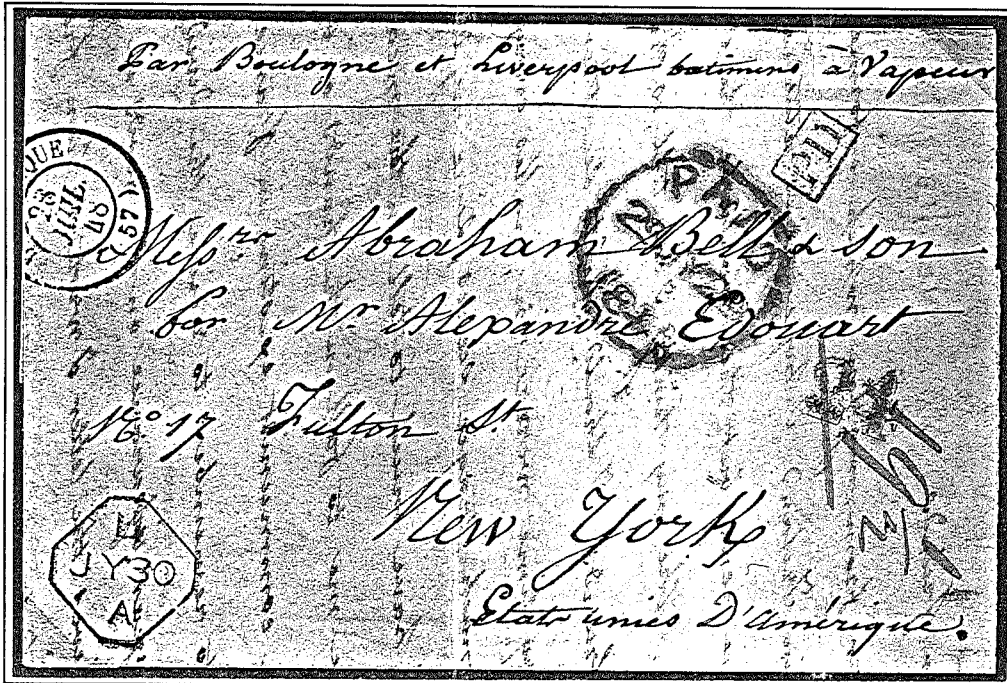 Par Boulogne et Liverpool batimens à Vapeur
P.D.
QUE
28
JUIL.
48
(57)
PAID
28
Messrs Abraham Bell & son
for Mr Alexandre Edouart
No 17 Fulton St
New York
Etats unies D'amérique.
L
JY30
A